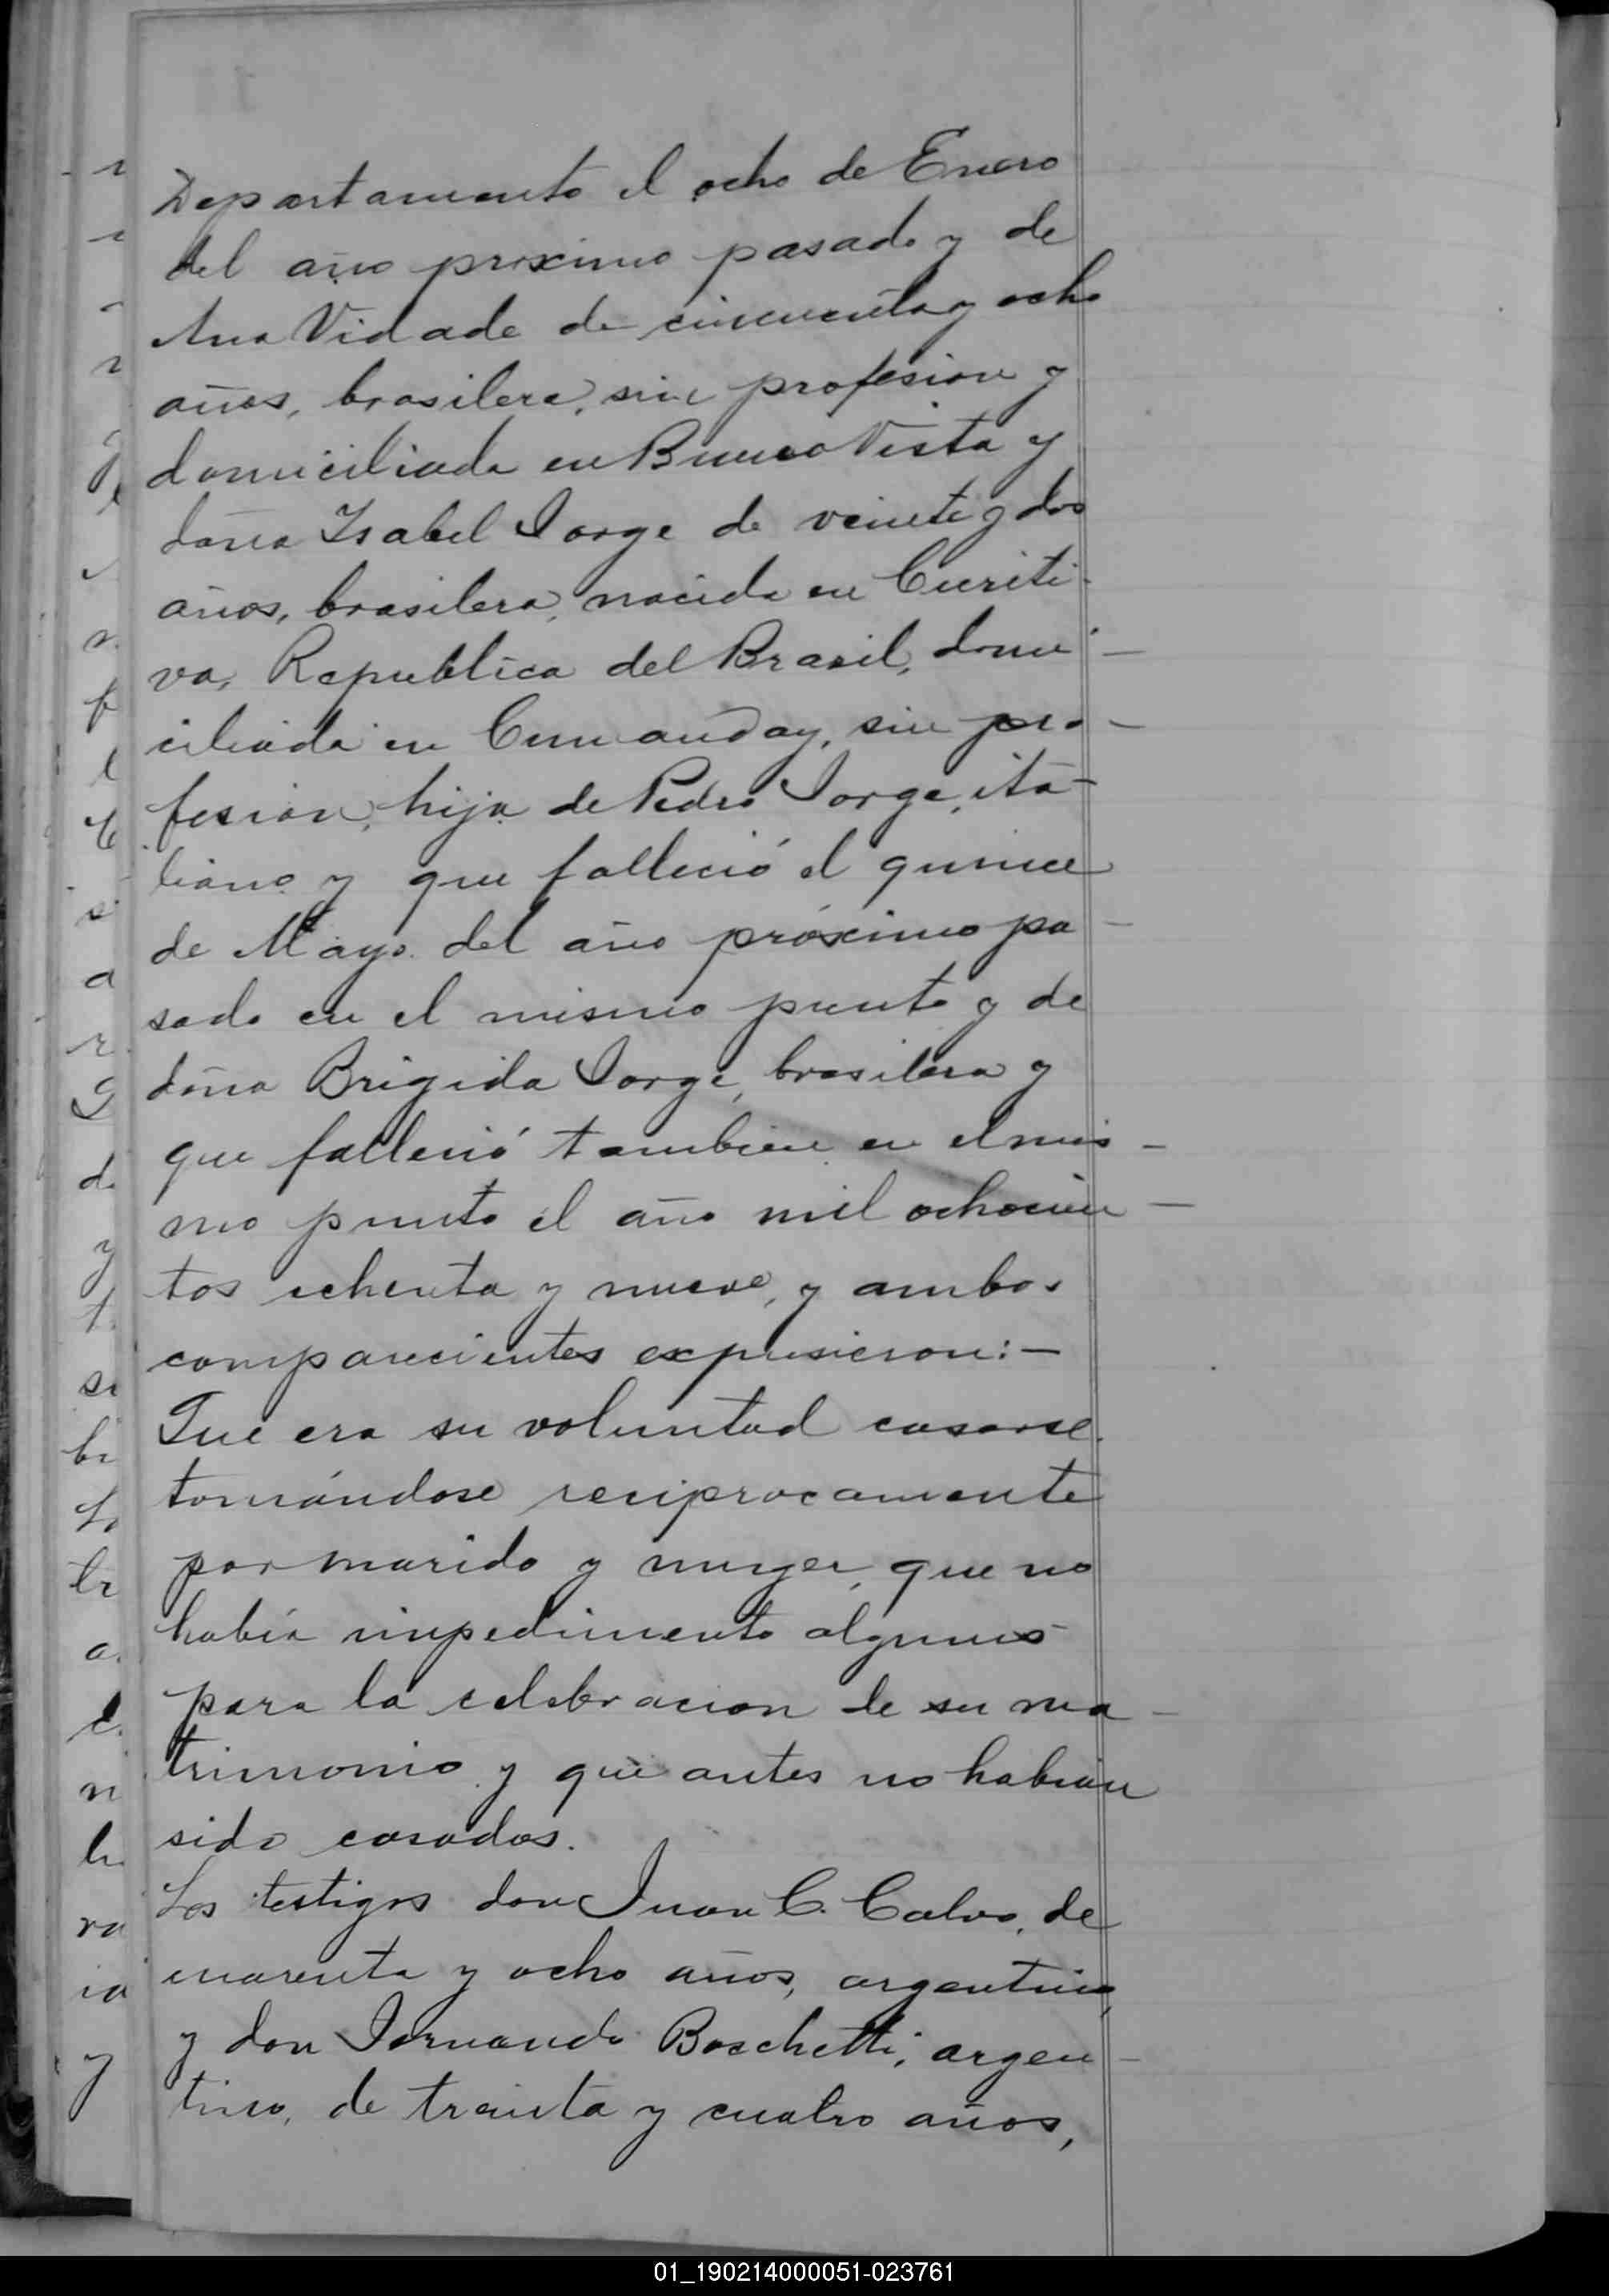 Departamento el ocho de Enero
del año proximo pasado y de
Ana Vidade de cincuenta y ocho
años, brasilera, sin profesion y
domiciliada en Buena Vista y
doña Isabel Jorge de veinte y dos
años, brasilera, nacida en Curiti-
va, Republica del Brasil, domi-
ciliada en Cumanday, sin pro-
fesion, hija de Pedro Jorge, ita-
liano y que falleció el quince
de Mayo del año próximo pa-
sado en el mismo punto y de
doña Brigida Jorge, brasilera y
que falleció tambien en el mis-
mo punto el año mil ochocien-
tos ochenta y nueve, y ambos
comparecientes expusieron:-
Que era su voluntad casarse
tomándose reciprocamente
por marido y muger, que no
había impedimento alguno
para la celebracion de su ma-
trimonio y que antes no habian
sido casados.
Los testigos don Juan C. Calvo, de
cuarenta y ocho años, argentino,
y don Fernando Boschetti, argen-
tino, de treinta y cuatro años,
01_190214000051-023761